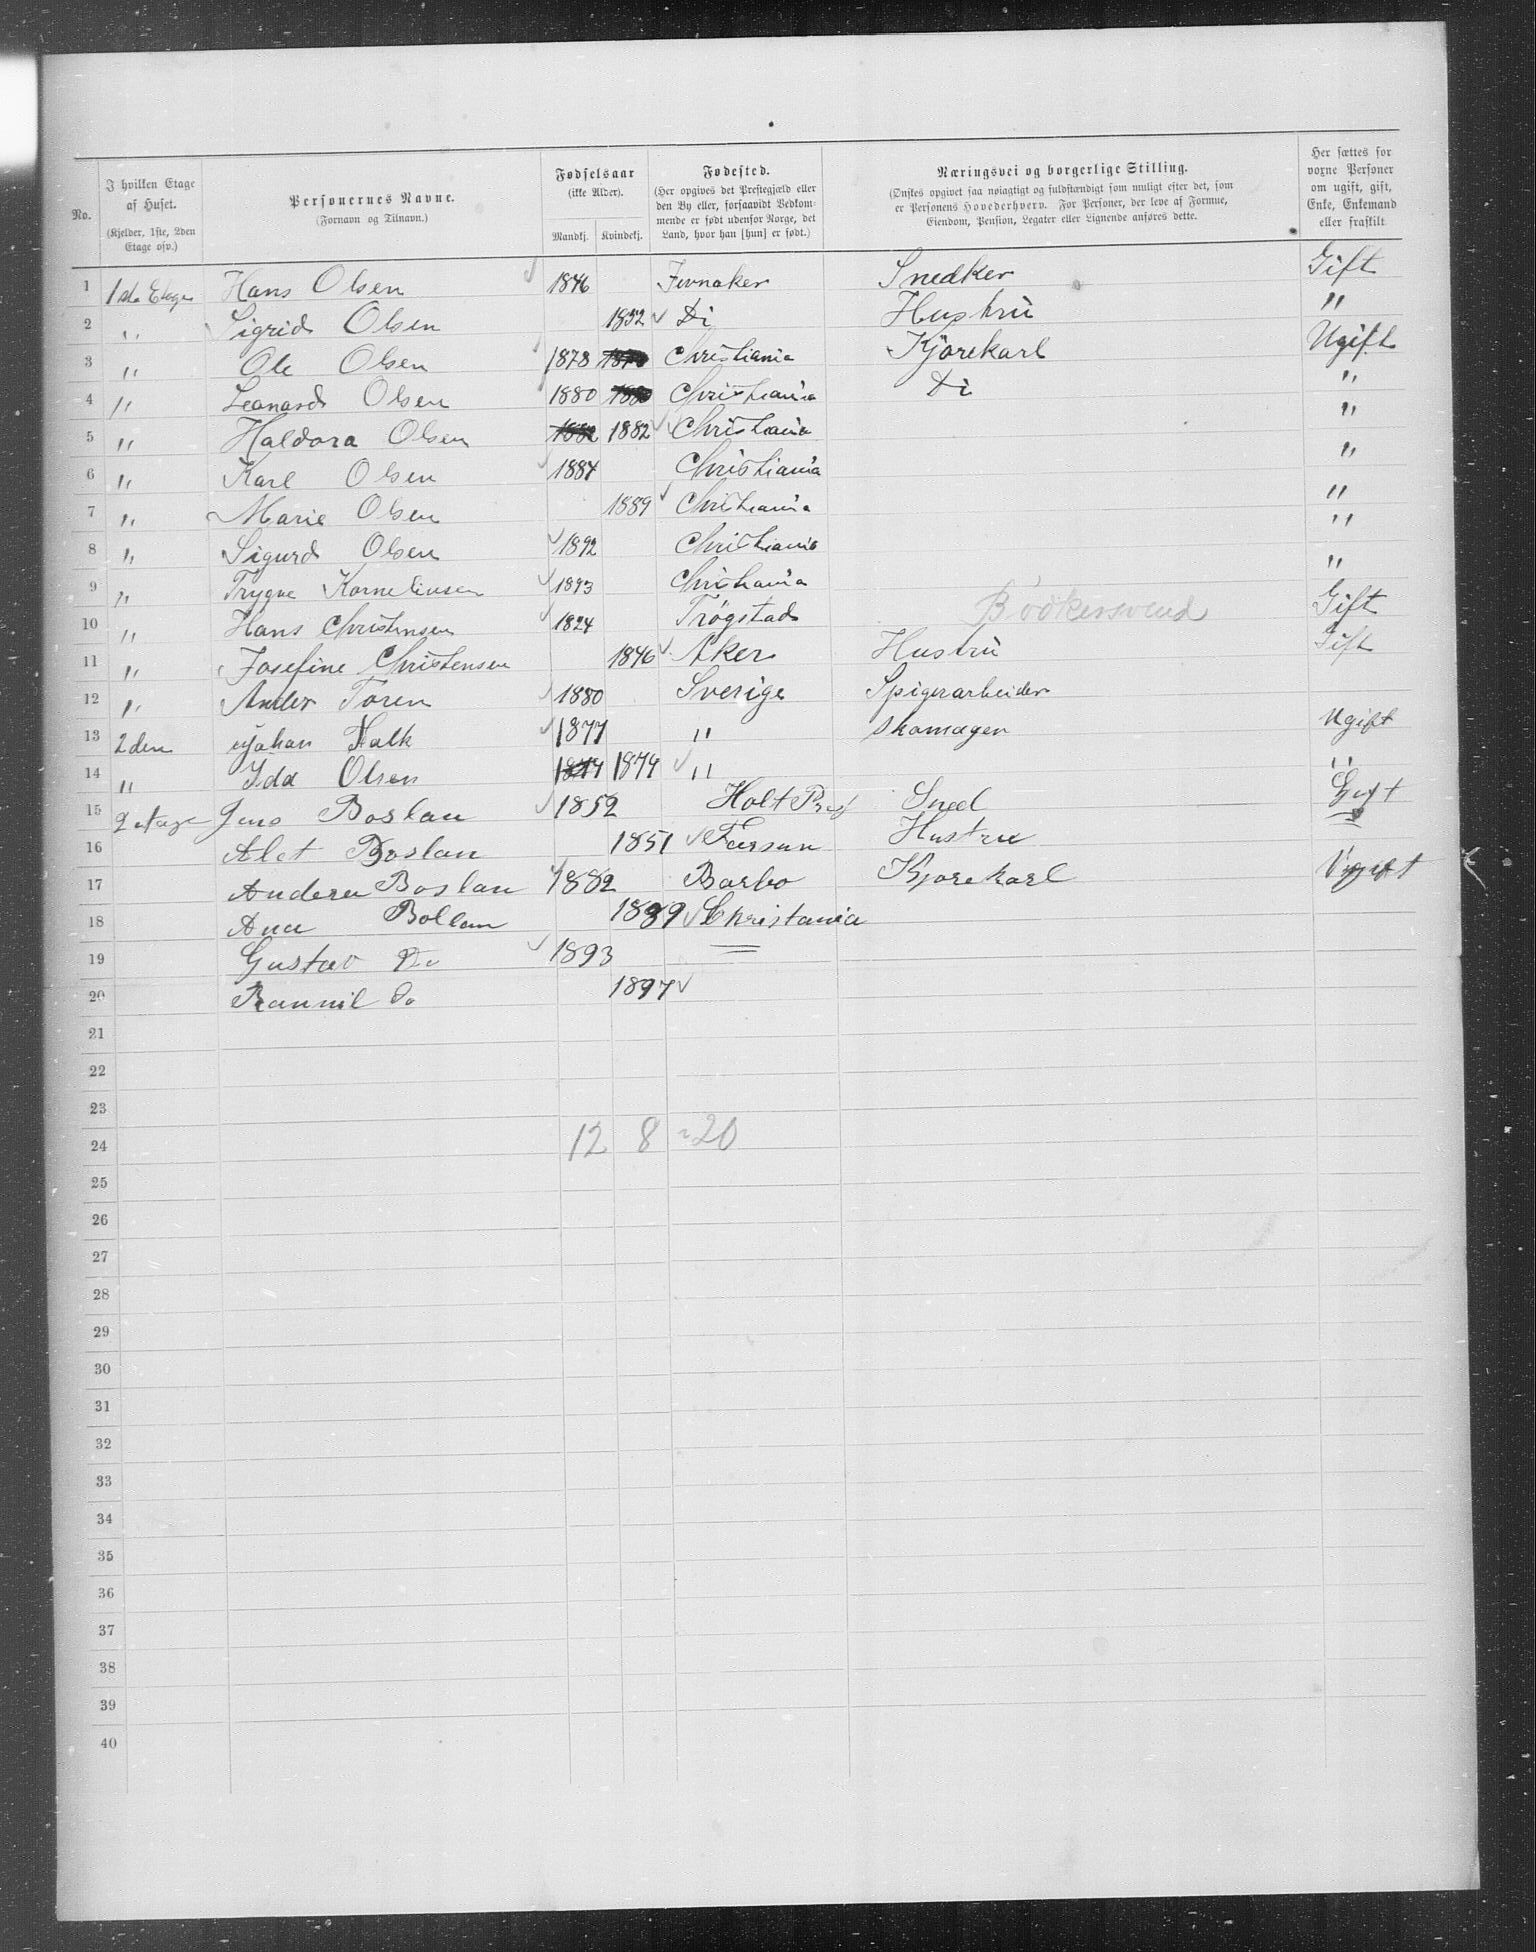 No.
I hvilken Etage af Huset.
(Kjelder, 1ste, 2den Etage osv.)
Personernes Navne.
(Fornavn og Tilnavn.)
Fødselsaar
(ikke Alder).
Mandkj. Kvindekj.
Fødested.
(Her opgives det Prestegjæld eller den By eller, forsaavidt Vedkommende er født udenfor Norge, det Land, hvor han [hun] er født.)
Næringsvei og borgerlige Stilling.
(Ønskes opgivet saa nøiagtigt og fuldstændigt som muligt efter det, som er Personens Hovederhverv. For Personer, der leve af Formue, Eiendom, Pension, Legater eller Lignende anføres dette.
Her sættes for voxne Personer om ugift, gift, Enke, Enkemand eller fraskilt.
1 1ste Etage Hans Olsen 1846 Jevnaker Snedker Gift
2 " Sigrid Olsen 1852 ✓ Di Hustru "
3 " Ole Olsen 1878 Christiania Kjørekarl Ugift
4 " Leonard Olsen 1880 1880 Christiania Di "
5 " Haldora Olsen 1882 1882 ✓ Christiania "
6 " Karl Olsen ✓ 1884 Christiania "
7 " Marie Olsen 1889 ✓ Christiania "
8 " Sigurd Olsen ✓ 1892 Christiania "
9 " Trygve Korneliusen ✓ 1893 Christiania "
10 " Hans Christensen ✓ 1824 Trøgstad Bödkersvend Gift
11 " Josefine Christensen 1846 ✓ Aker Hustru Gift
12 " Toren ✓ 1880 Sverige Spigerarbeider
13 2den Johan Falk ✓ 1877 " Skomager Ugift
14 " Ida Olsen 1874 ✓ " "
15 2 etage Jens Boslan ✓ 1852 Holt Snedk Gift
16 Alet Boslan 1851 ✓ Farsun Hustru
17 Anderea Boslan ✓ 1882 Barbo Kjørekarl Ugift
18 Ana 1889 ✓ Christania
19 Gustav Do ✓ 1893 =
20 Do 1897 ✓
21
22
23
24 12 8 = 20
25
26
27
28
29
30
31
32
33
34
35
36
37
38
39
40